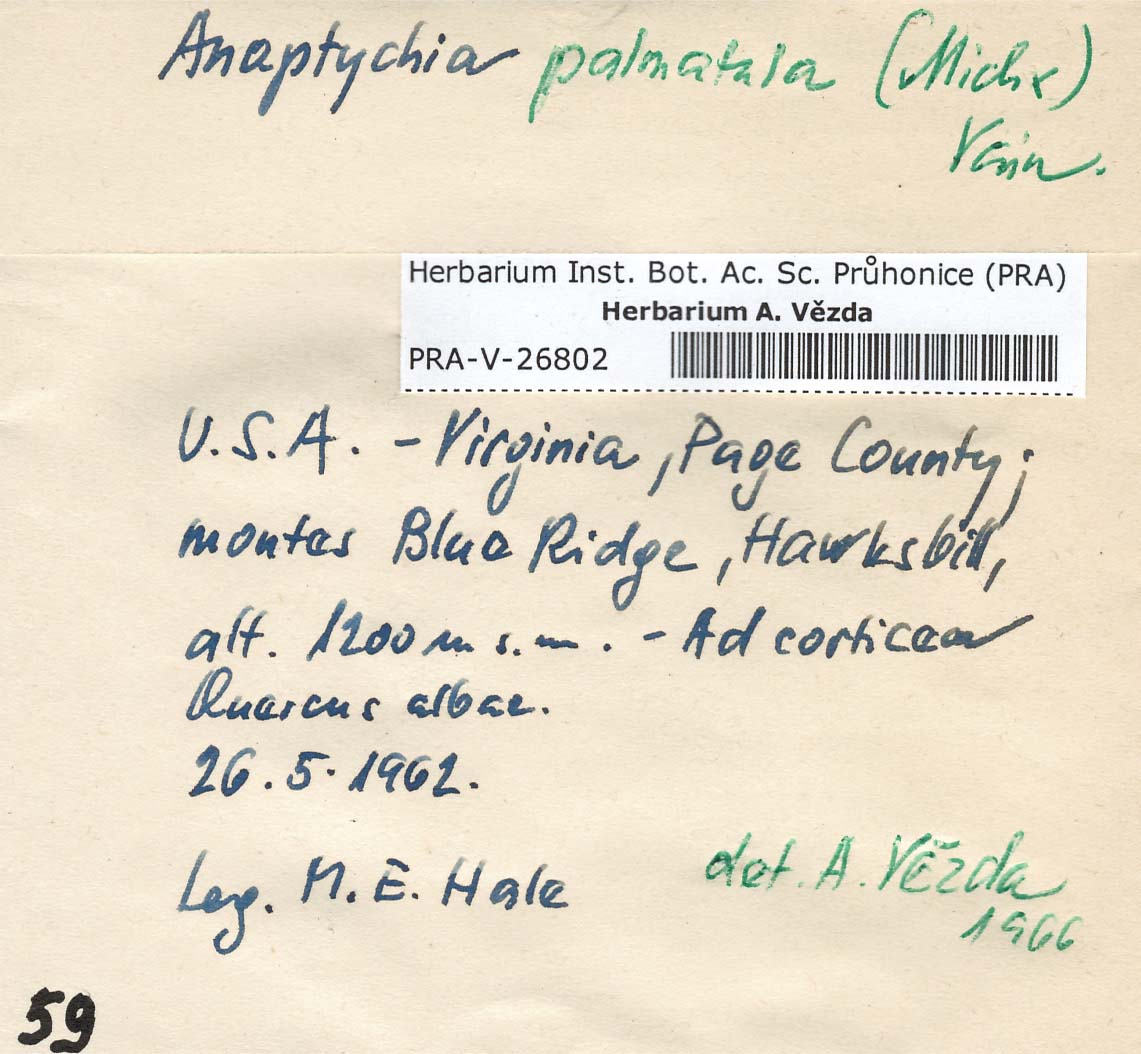 Anaptychia palmatula (Michx)
Vain.
Herbarium Inst. Bot. Ac. Sc. Průhonice (PRA)
Herbarium A. Vězda
PRA-V-26802
U.S.A. - Virginia, Page County;
montes Blue Ridge, Hawksbill,
alt. 1200 m s.m. - Ad corticem
Quercus albae.
26.5.1962.
Leg. M. E. Hale
det. A. Vězda
1966
59